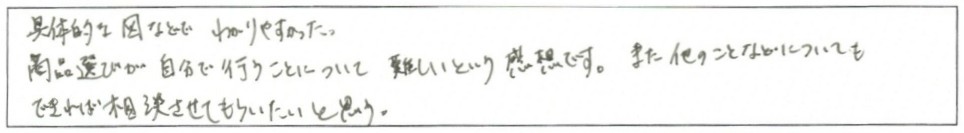 具体的な図などで わかりやすかった。
商品選びが 自分で行うことについて 難しいという 感想です。 また他のことなどについても
できれば相談させてもらいたいと思う。